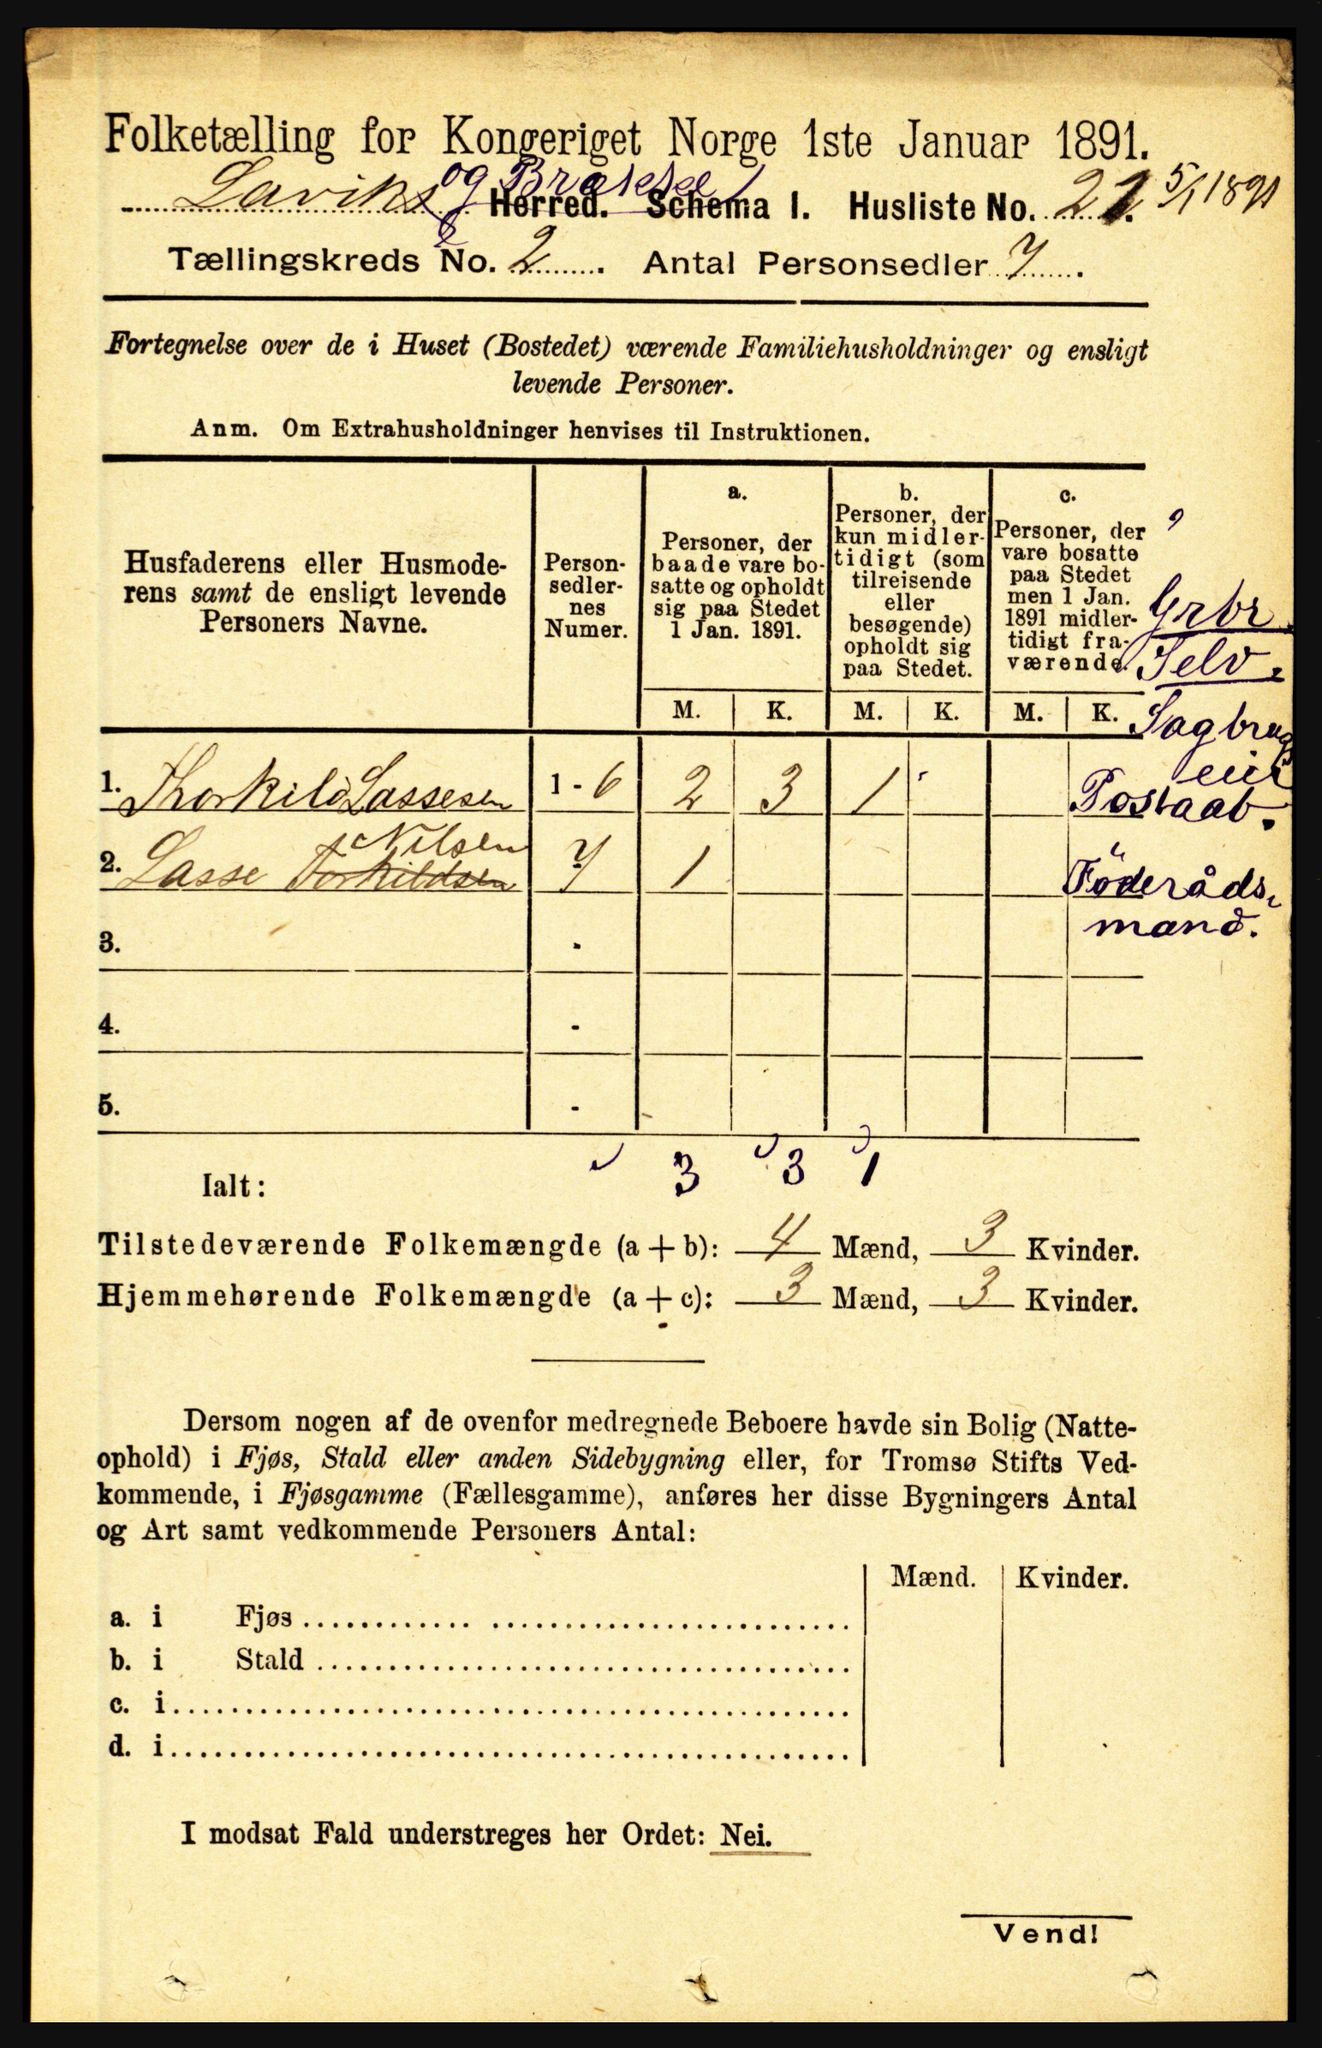 Folketælling for Kongeriget Norge 1ste Januar 1891.
Laviks og Brække Herred. Schema I. Husliste No. 21. 5/1 1891
Tællingskreds No. 2. Antal Personsedler 7.
Fortegnelse over de i Huset (Bostedet) værende Familiehusholdninger og ensligt
levende Personer.
Anm. Om Extrahusholdninger henvises til Instruktionen.
Husfaderens eller Husmode-
rens samt de ensligt levende
Personers Navne.
Person-
sedler-
nes
Numer.
a.
Personer, der
baade vare bo-
satte og opholdt
sig paa Stedet
1 Jan. 1891.
b.
Personer, der
kun midler-
tidigt (som
tilreisende
eller
besøgende)
opholdt sig
paa Stedet.
c.
Personer, der
vare bosatte
paa Stedet
men 1 Jan.
1891 midler-
tidigt fra-
værende.
M. K. M. K. M. K.
Grbr.
Selv.
Sagbrug
eier
Postaab.
1. Thorkild Lassesen 1 - 6 2 3 1
2. Lasse Torkildsen Nilsen 7 1
Föderåds-
mand.
3. -
4. -
5. -
Ialt: 3 3 1
Tilstedeværende Folkemængde (a + b): 4 Mænd, 3 Kvinder.
Hjemmehørende Folkemængde (a + c): 3 Mænd, 3 Kvinder.
Dersom nogen af de ovenfor medregnede Beboere havde sin Bolig (Natte-
ophold) i Fjøs, Stald eller anden Sidebygning eller, for Tromsø Stifts Ved-
kommende, i Fjøsgamme (Fællesgamme), anføres her disse Bygningers Antal
og Art samt vedkommende Personers Antal:
Mænd. Kvinder.
a. i Fjøs
b. i Stald
c. i
d. i
I modsat Fald understreges her Ordet: Nei.
Vend!